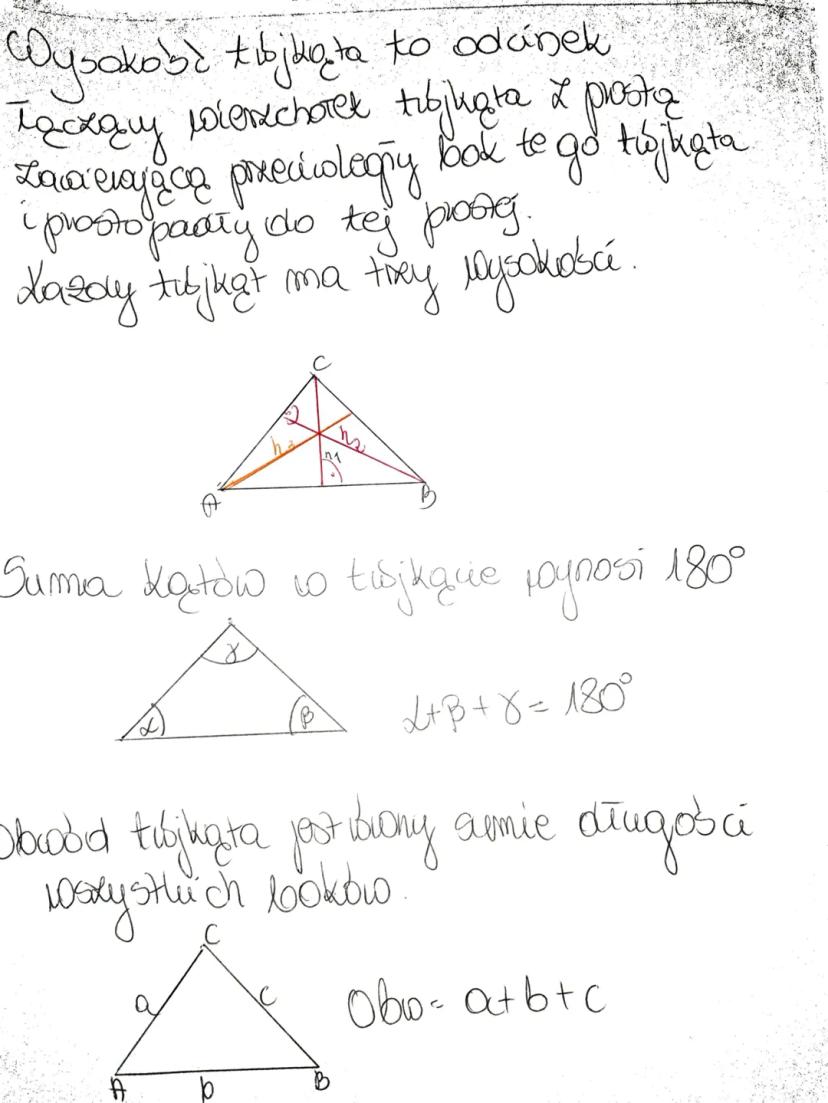 Wysokość trójkąta to odcinek
łączący wierzchołek trójkąta z prostą
zawierającą przeciwległy bok tego trójkąta
i prostopadły do tej prostej.
Każdy trójkąt ma trzy wysokości.
C
h3 h2
h1
A B
Suma kątów w trójkącie wynosi 180°
γ
α β α+β+γ= 180°
Obwód trójkąta jest równy sumie długości
wszystkich boków.
C
a c Obw= a+b+c
A b B